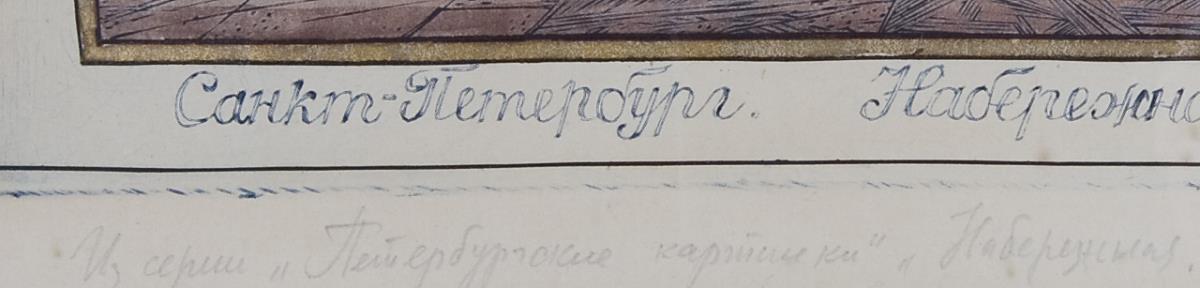 Санкт-Петербург. Набережна
Из серии „Петербургские картинки" „Набережная.